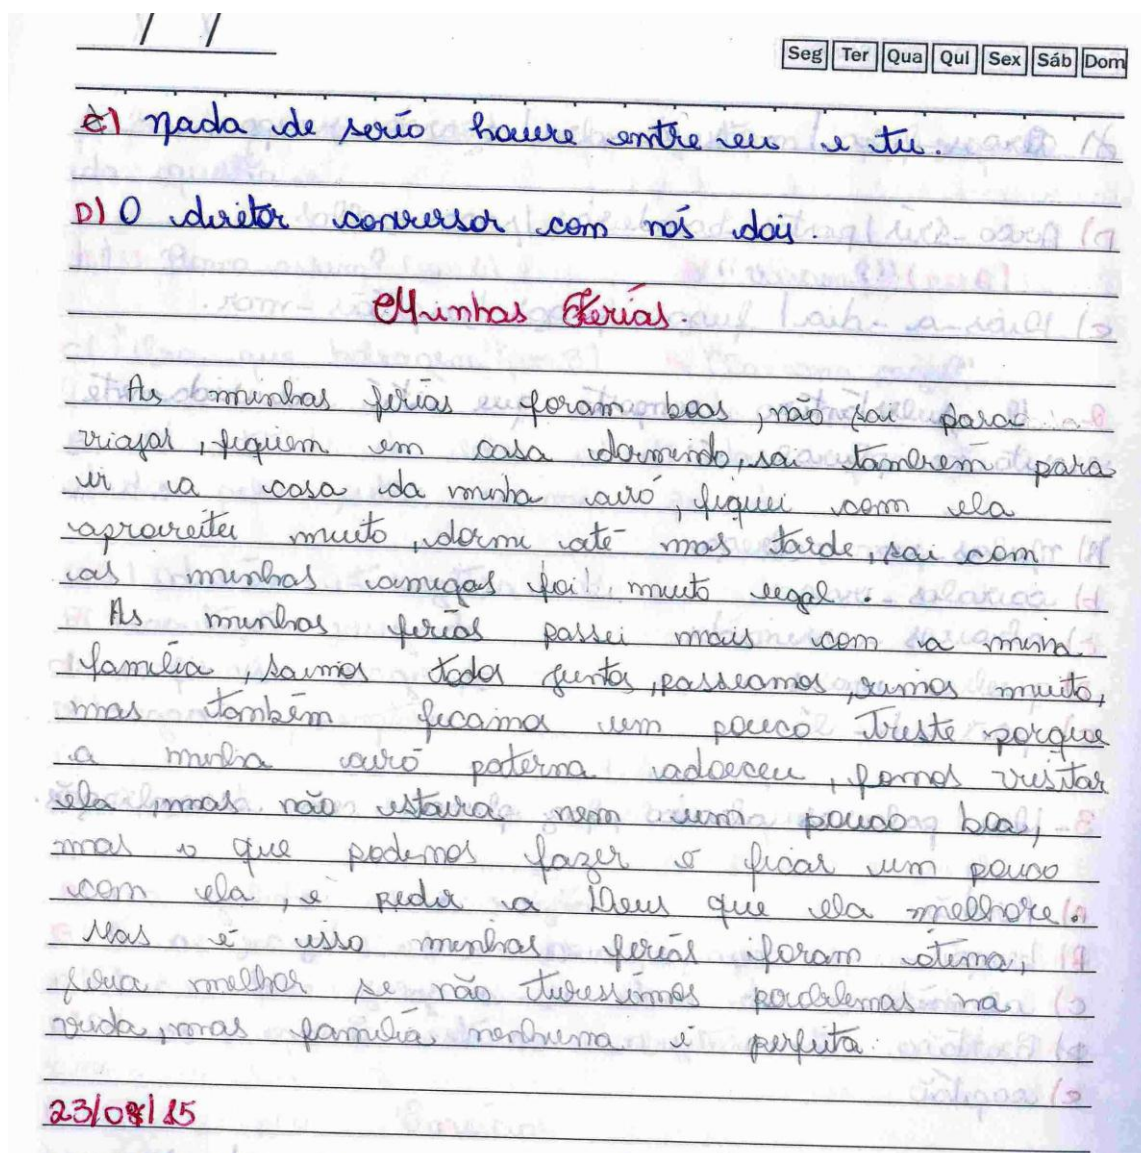 / /
Seg Ter Qua Qui Sex Sáb Dom
C) nada de serío houve entre eu e tu.
D) O diretor conversor com nós dois.
Minhas Ferías.
As minhas ferías foram boas, não sai para
viajar, fiquem em casa dormindo, sai também para
ir a casa da minha avó, fiquei com ela
aproveitei muito, dormi até mas tarde, sai com
as minhas amigas foi muito legal.
As minhas ferías passei mais com a minha
família, saimos todos juntos, passeamos, rimos muito,
mas também ficamos um pouco triste porque
a minha avó paterna adoeceu, fomos visitar
ela, mas não estava nem um pouco boa,
mas o que podemos fazer é ficar um pouco
com ela, e pedir a Deus que ela melhore.
Mas é isso minhas ferías foram ótima,
seria melhor se não tivessímos problemas na
vida, mas família nenhuma é perfeita.
23/08/15